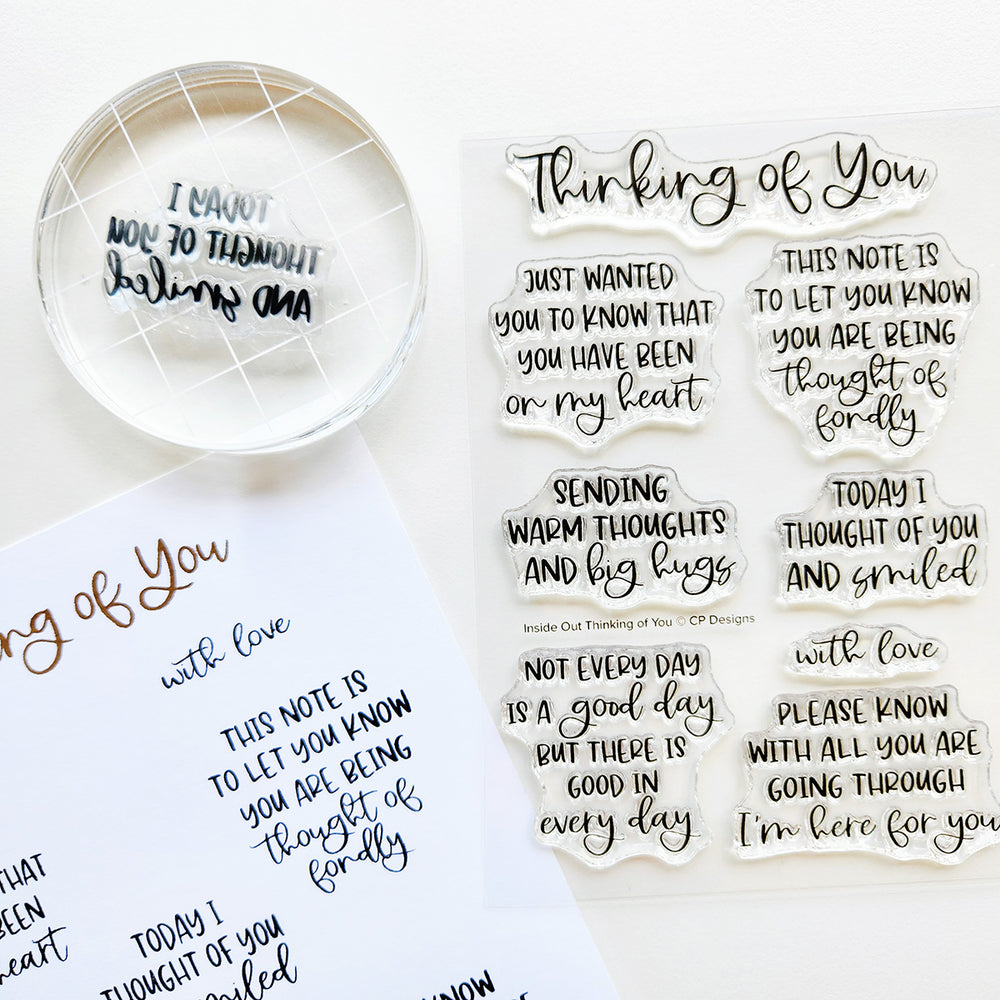 TODAY I
THOUGHT OF YOU
AND smiled
Thinking of You
JUST WANTED
YOU TO KNOW THAT
YOU HAVE BEEN
on my heart
THIS NOTE IS
TO LET YOU KNOW
YOU ARE BEING
thought of
fondly
SENDING
WARM THOUGHTS
AND big hugs
TODAY I
THOUGHT OF YOU
AND smiled
Inside Out Thinking of You © CP Designs
NOT EVERY DAY
IS A good day
BUT THERE IS
GOOD IN
every day
with love
PLEASE KNOW
WITH ALL YOU ARE
GOING THROUGH
I'm here for you
ng of You
with love
THIS NOTE IS
TO LET YOU KNOW
YOU ARE BEING
thought of
fondly
THAT
BEEN
heart
TODAY I
THOUGHT OF YOU
smiled
KNOW